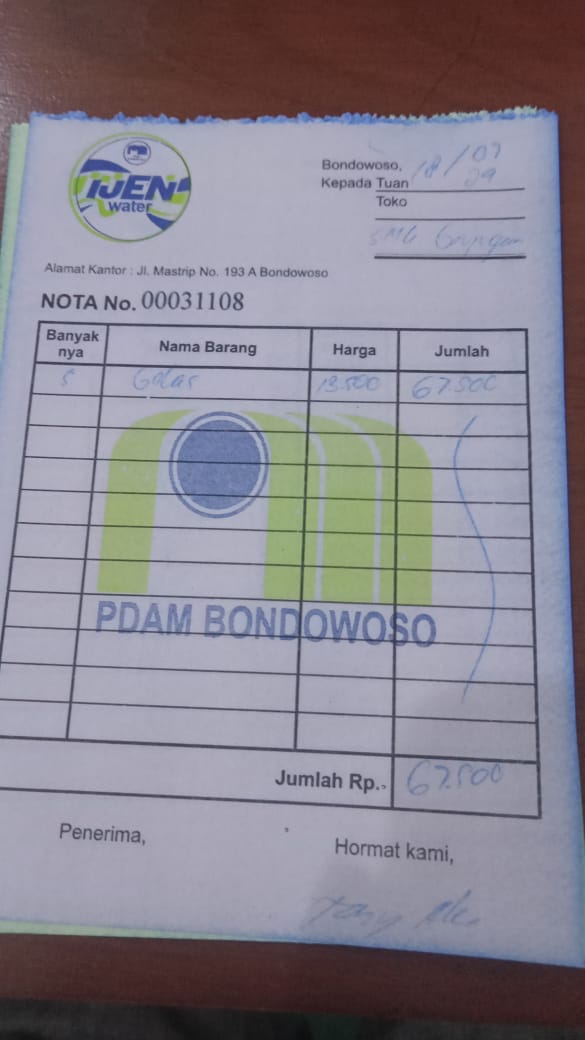 IJEN
water
Bondowoso, 18/07
Kepada Tuan
Toko
Alamat Kantor : Jl. Mastrip No. 193 A Bondowoso
NOTA No. 00031108
Banyak nya Nama Barang Harga Jumlah
5 13.500 67.500
PDAM BONDOWOSO
Jumlah Rp. 67.500
Penerima, Hormat kami,